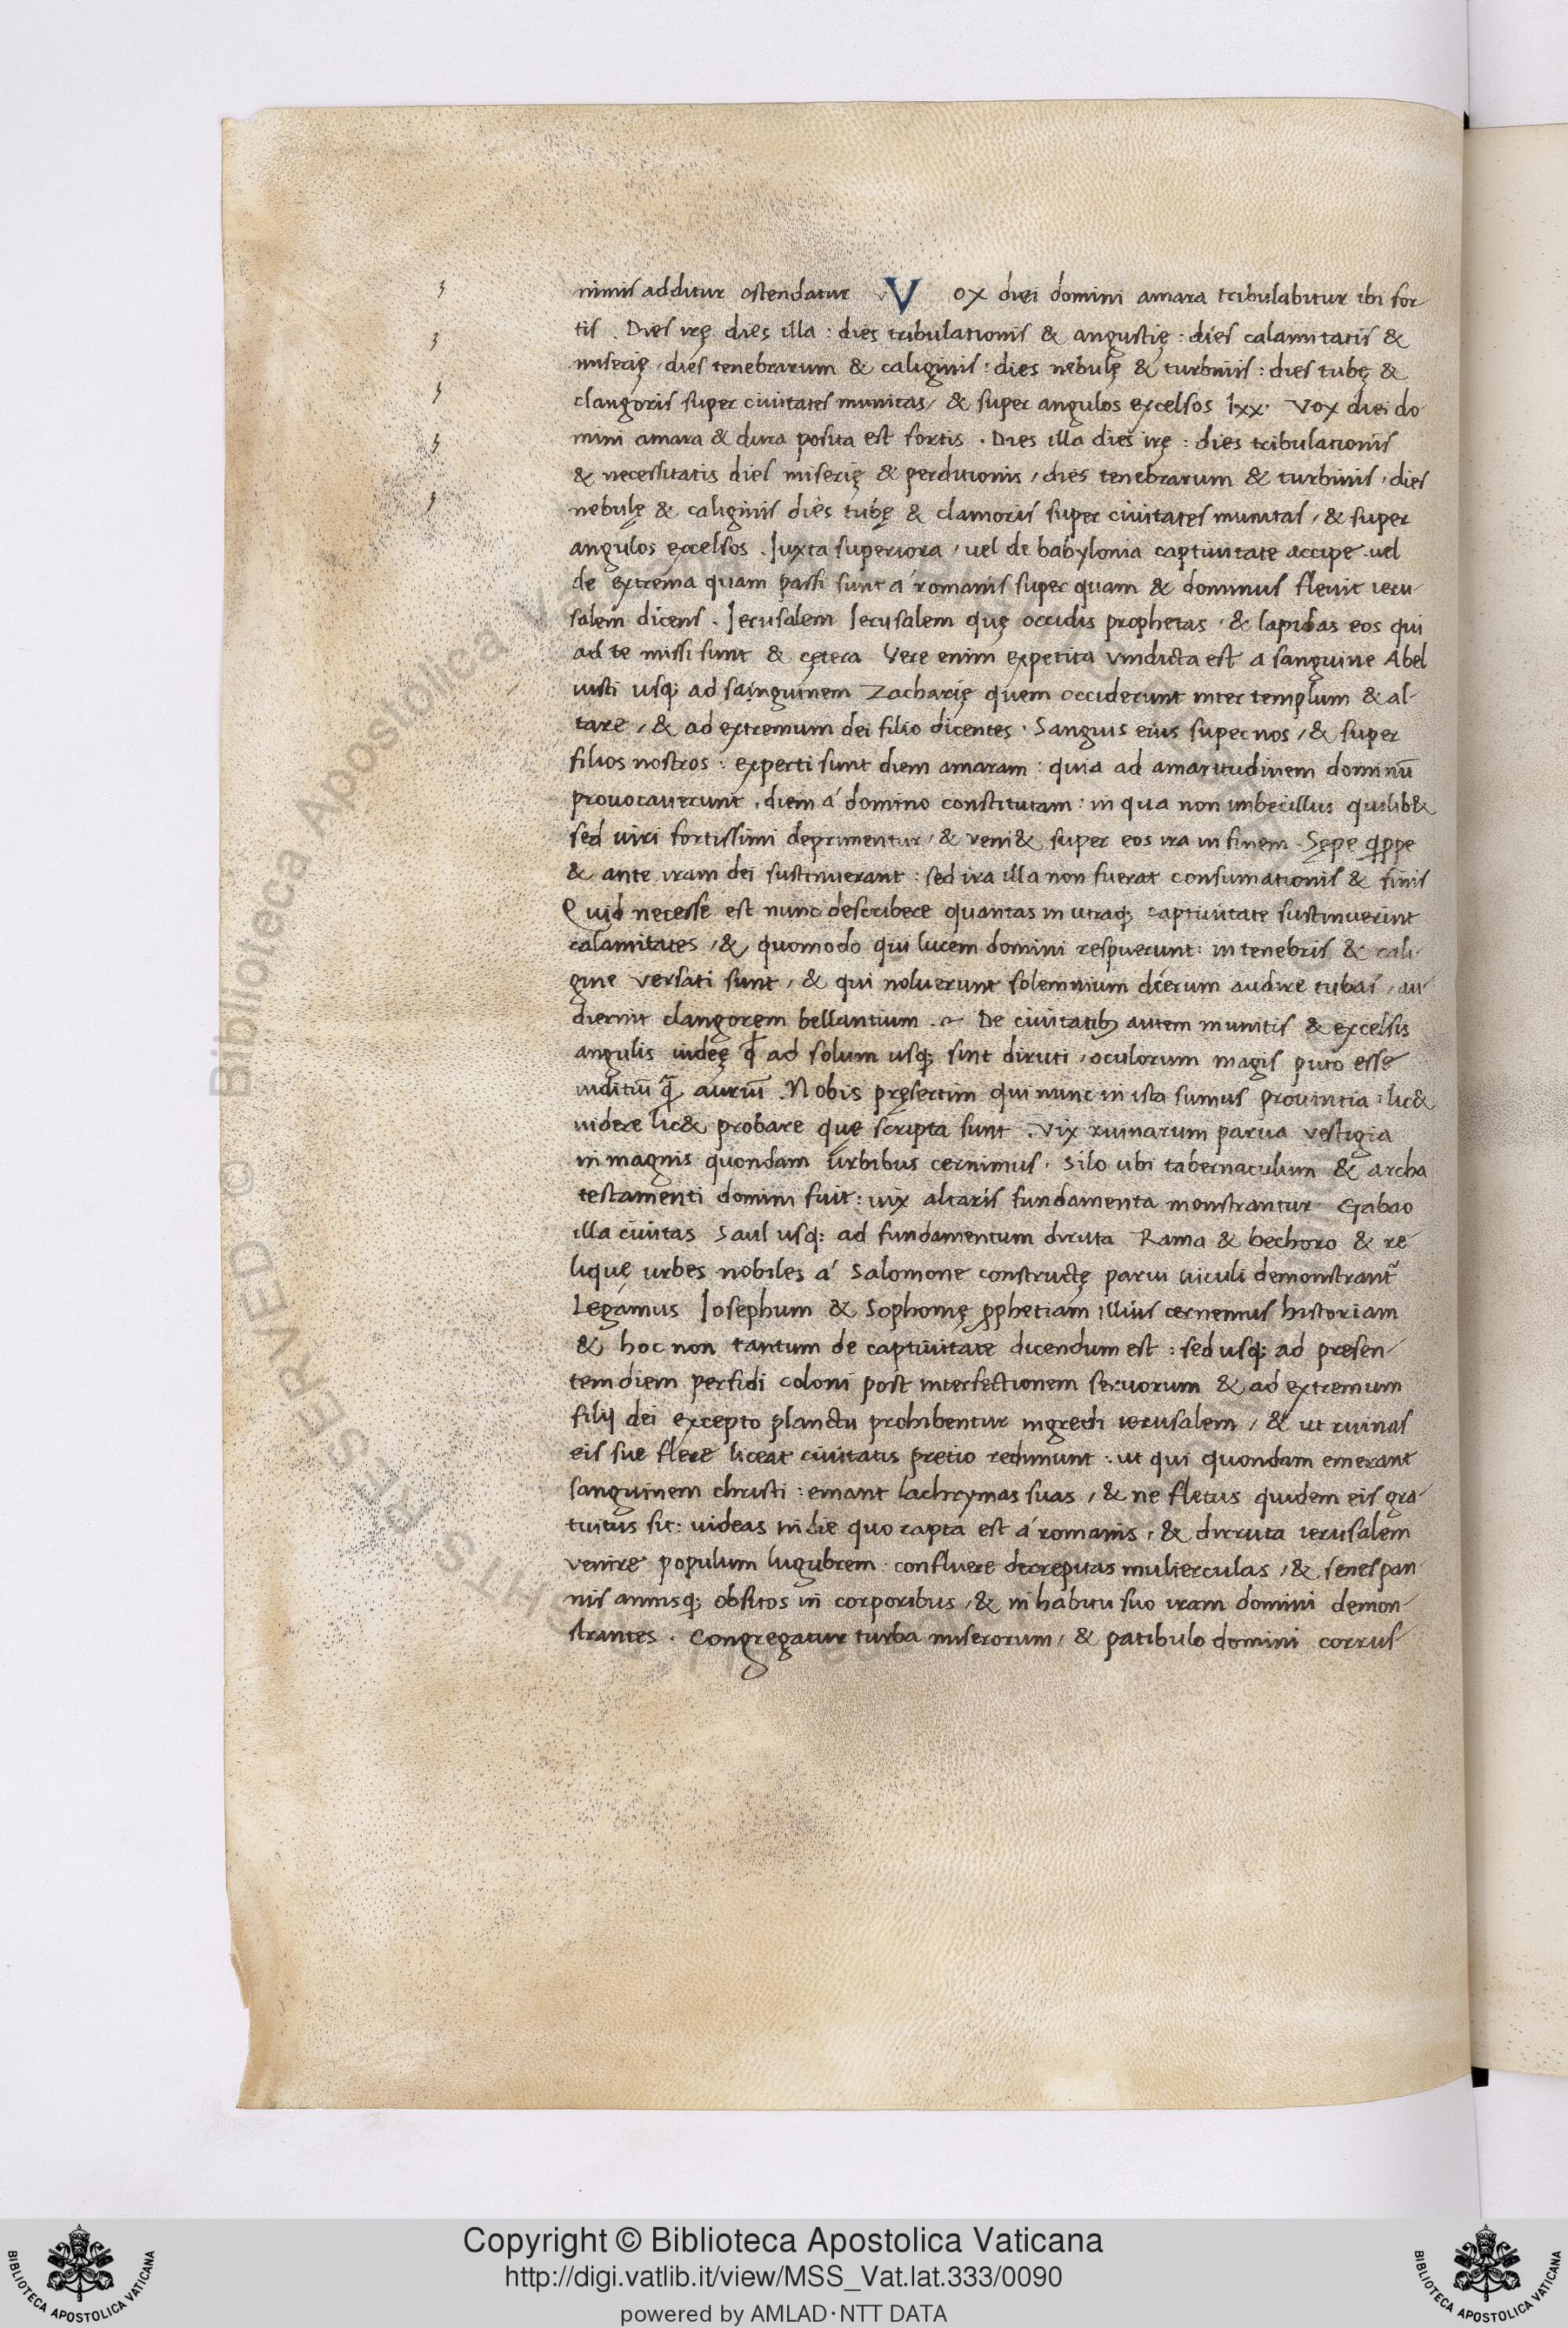 nimis additur ostendatur Vox diei domini amara tribulabitur ibi for-
tis . Dies irę dies illa : dies tribulationis & angustię : dies calamitatis &
miserię / dies tenebrarum & caliginis : dies nebulę & turbinis : dies tubę &
clangoris super ciuitates munitas / & super angulos excelsos lxx . Vox diei do
mini amara & dura posita est fortis . Dies illa dies irę : dies tribulationis
& necessitatis dies miserię & perditionis / dies tenebrarum & turbinis , dies
nebulę & caliginis dies tubę & clamoris super ciuitates munitas / & super
angulos excelsos . Juxta superiora / uel de babylonia captiuitate accipe . uel
de extrema quam passi sunt á romanis super quam & dominus fleuit ieru-
salem dicens . Jerusalem Jerusalem quę occidis prophetas , & lapidas eos qui
ad te missi sunt & cętera Vere enim expetita vindicta est a sanguine Abel
iusti usq; ad sainguinem Zacharię quem occiderunt inter templum & al-
tare / & ad extremum dei filio dicentes . Sanguis eius super nos / & super
filios nostros : experti sunt diem amaram : quia ad amaritudinem dominū
prouocauerunt . diem á domino constitutam : in qua non imbecillus quilib&
sed uiri fortissimi deprimentur / & veni& super eos ira in finem . Sępe q̄ppe
& ante iram dei sustinuerant : sed ira illa non fuerat consumationis & finis
Quid necesse est nunc describere quantas in utraq; captiuitate sustinuerint
calamitates / & quomodo qui lucem domini respuerunt : in tenebris & cali-
gine versati sunt / & qui noluerunt solemnium dierum audire tubas / au-
diernit clangorem bellantium . De ciuitatib; autem munitis & excelsis
angulis iudeę q̄ ad solum usq; sint diruti / oculorum magis puto esse
iuditiū q̄ auriū . Nobis pręsertim qui nunc in ista sumus prouintia : lic&
uidere lic& probare quę scripta sunt . Vix ruinarum parua vestigia
in magnis quondam urbibus cernimus . Silo ubi tabernaculum & archa
testamenti domini fuit : uix altaris fundamenta monstrantur Gabao
illa ciuitas Saul usq; ad fundamentum diruta Rama & bethoro & re-
liquę urbes nobiles á Salomone constructę parui uiculi demonstrant᷑
Legamus Josephum & Sophonię p̱phetiam illius cernemus historiam
& hoc non tantum de captiuitate dicendum est : sed usq; ad presen-
tem diem perfidi coloni post interfectionem seruorum & ad extremum
filij dei excepto planctu prohibentur ingredi ierusalem / & ut ruinas
eis sue flere liceat ciuitatis pretio redimunt : ut qui quondam emerant
sanguinem christi : emant lachrymas suas / & ne fletus quidem eis gra-
tuitus sit : uideas in die quo capta est á romanis / & dirruta ierusalem
venire populum lugubrem . confluere decrepitas mulierculas / & senes pan
nis annisq; obsitos in corporibus / & in habitu suo iram domini demon-
strantes . Congregatur turba miserorum / & patibulo domini corrus-
Copyright © Biblioteca Apostolica Vaticana
http://digi.vatlib.it/view/MSS_Vat.lat.333/0090
powered by AMLAD·NTT DATA
BIBLIOTECA APOSTOLICA VATICANA
BIBLIOTECA APOSTOLICA VATICANA